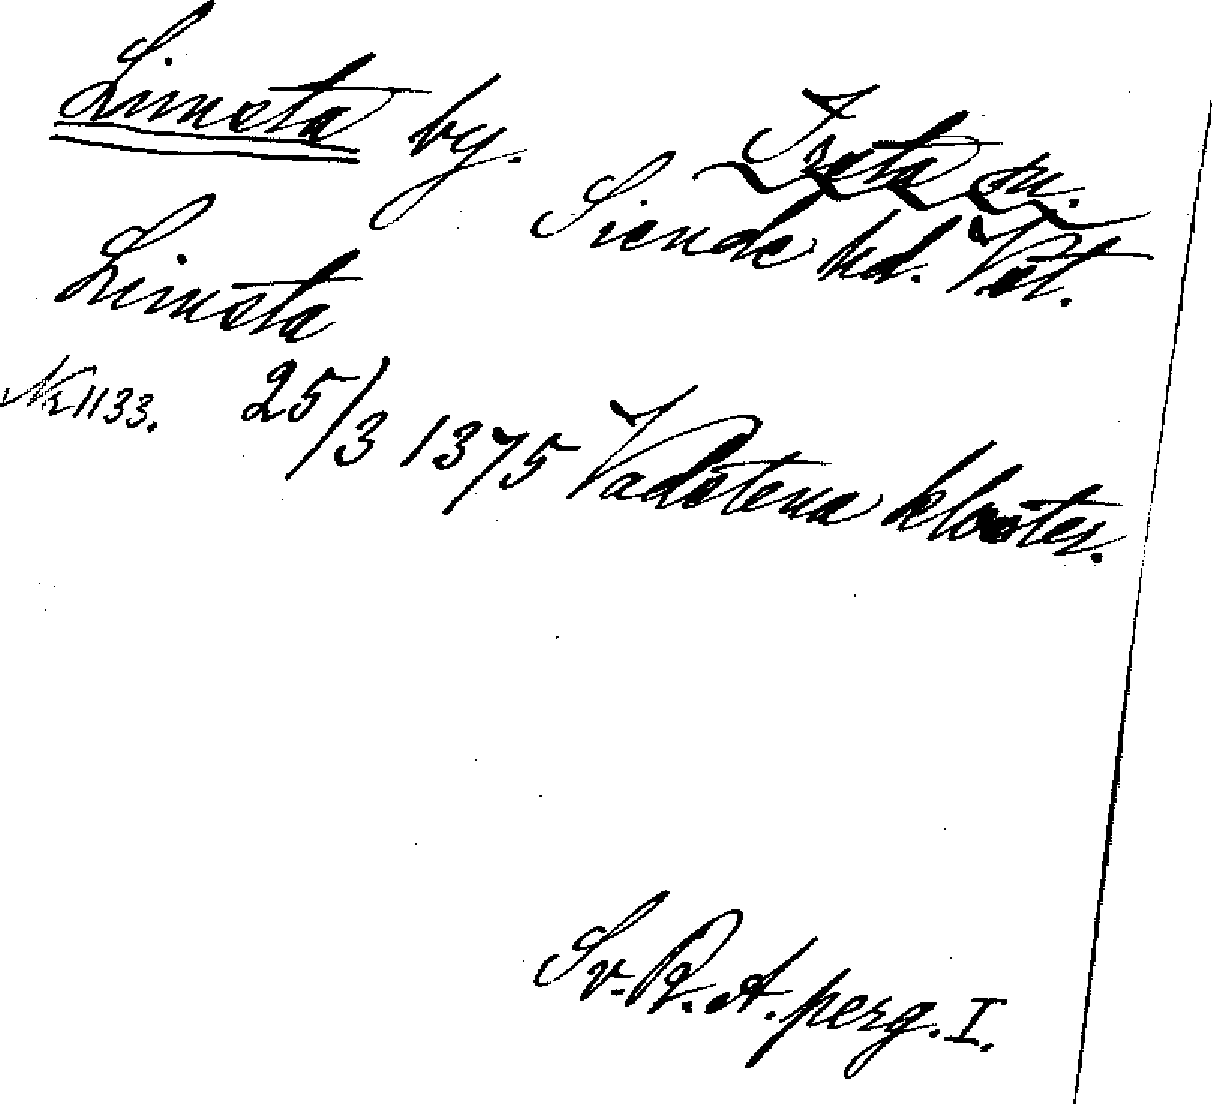 Limsta by. Irsta sn.
Siende hd. Vst.
Limsta
Nr 1133. 25/3 1375 Vadstena kloster.
Sv. R. A. perg. I.